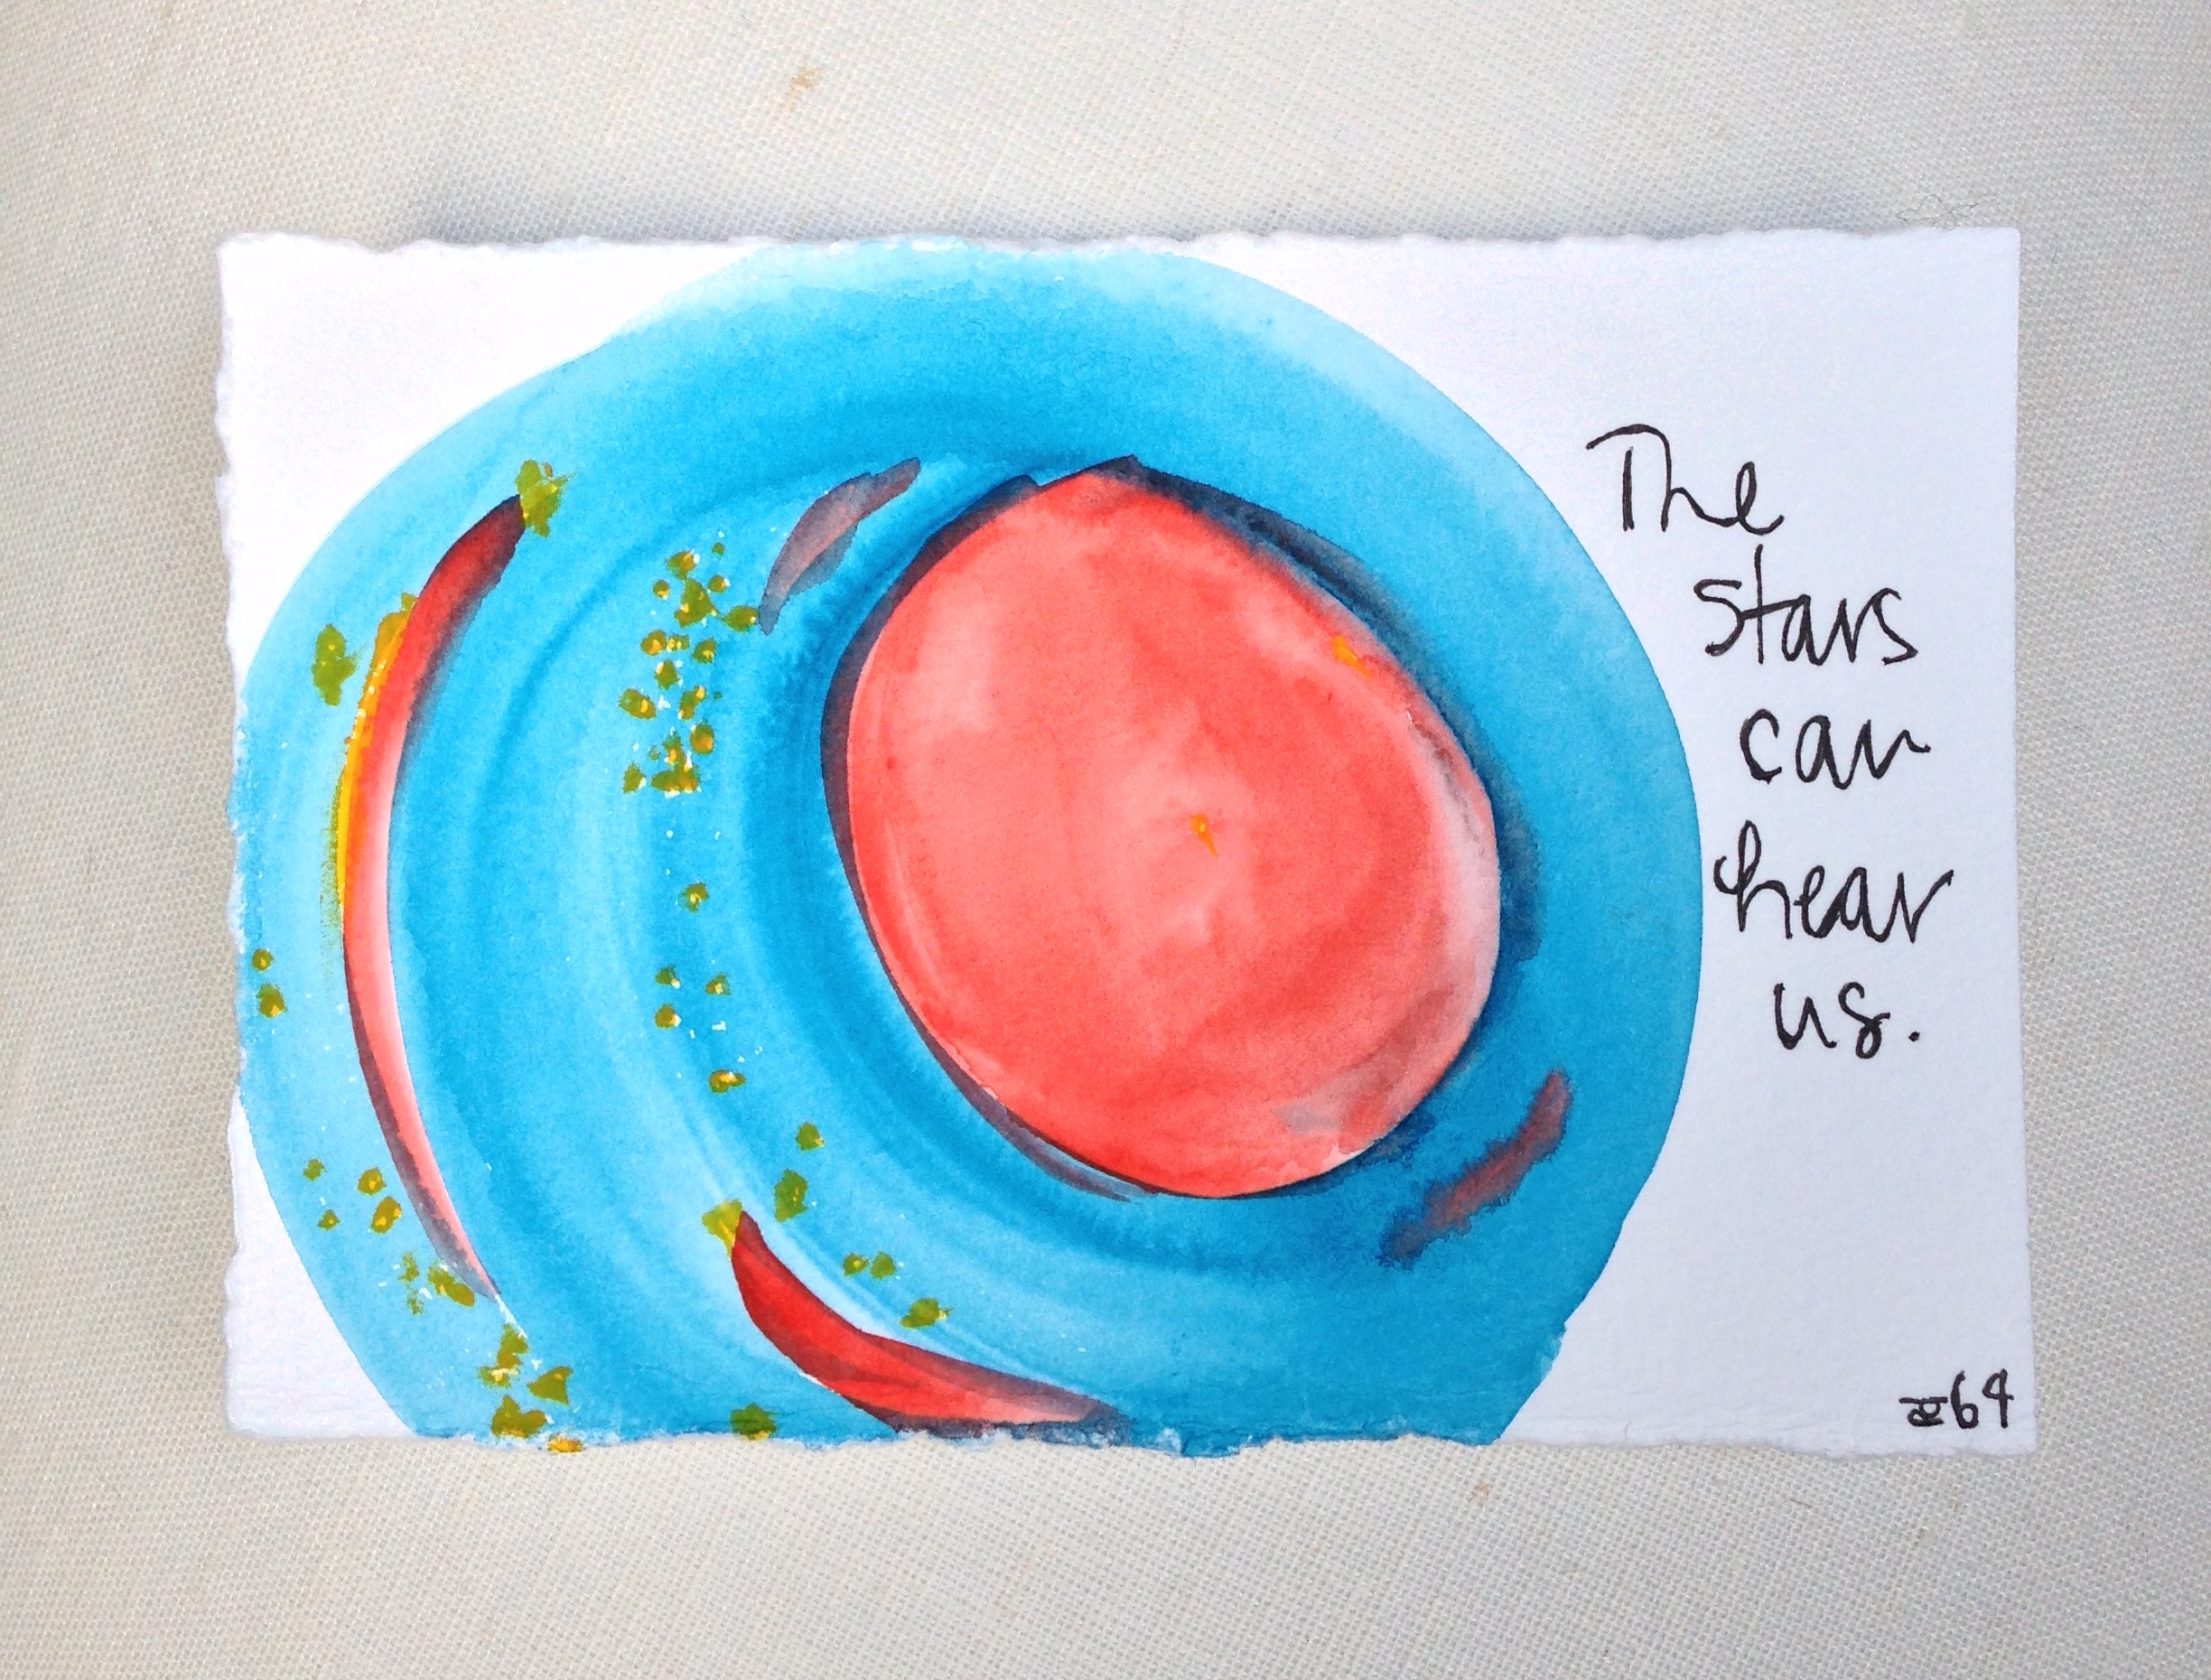 The
stars
can
hear
us.
æ64